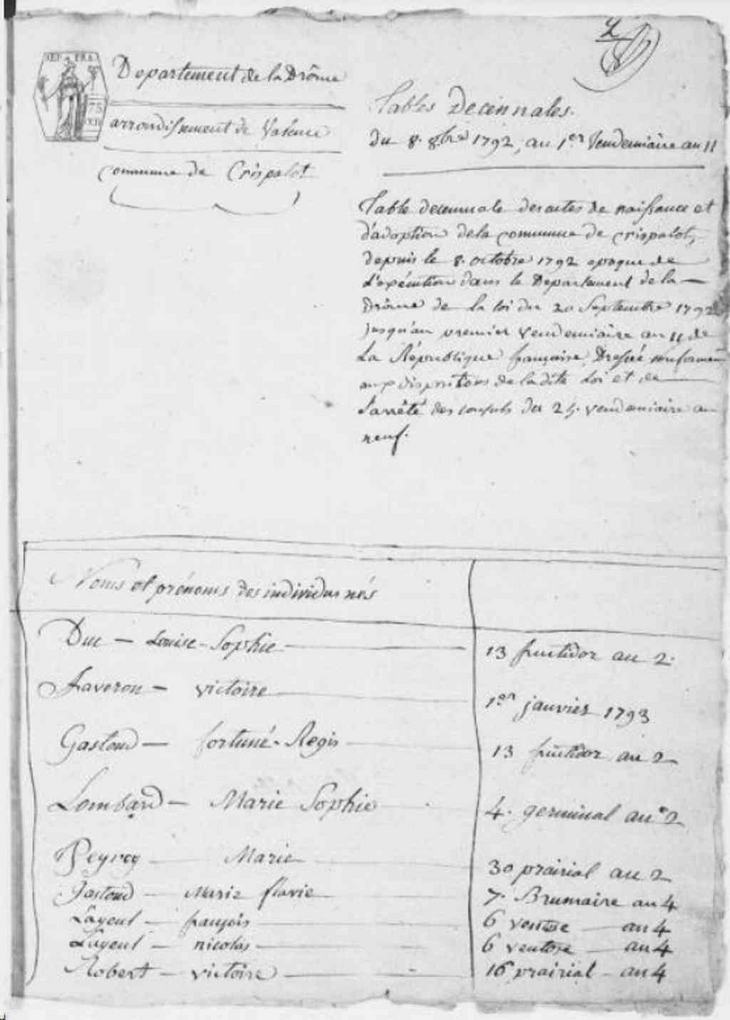 REP. FRA.
75
Departement de la Drôme
arrondissement de Valence
commune de Crispalot
Tables Decennales.
du 8. 8bre 1792, au 1er Vendemiaire an 11
Table decennale des actes de naissance et
d'adoption de la commune de crispalot,
depuis le 8. octobre 1792 epoque de
L'exécution dans le Departement de la
Drôme de la loi du 20 Septembre 1792
jusqu'au premier vendemiaire an 11 de
La République française, Dressée conformement
aux dispositions de la dite Loi et de
l'arrêté des consuls du 25. vendemiaire an
neuf.
Noms et prénoms des individus nés
Duc — Louise-Sophie — 13 fructidor an 2.
Faveron — victoire — 1er janvier 1793
Gastoud — fortuné-Regis — 13 fructidor an 2
Lombard — Marie Sophie — 4. germinal an 2
Marie — 30 prairial an 2
Gastoud — Marie flavie — 7. Brumaire an 4
Layeul — françois — 6 ventose — an 4
Layeul — nicolas — 6 ventose — an 4
Robert — victoire — 16 prairial — an 4